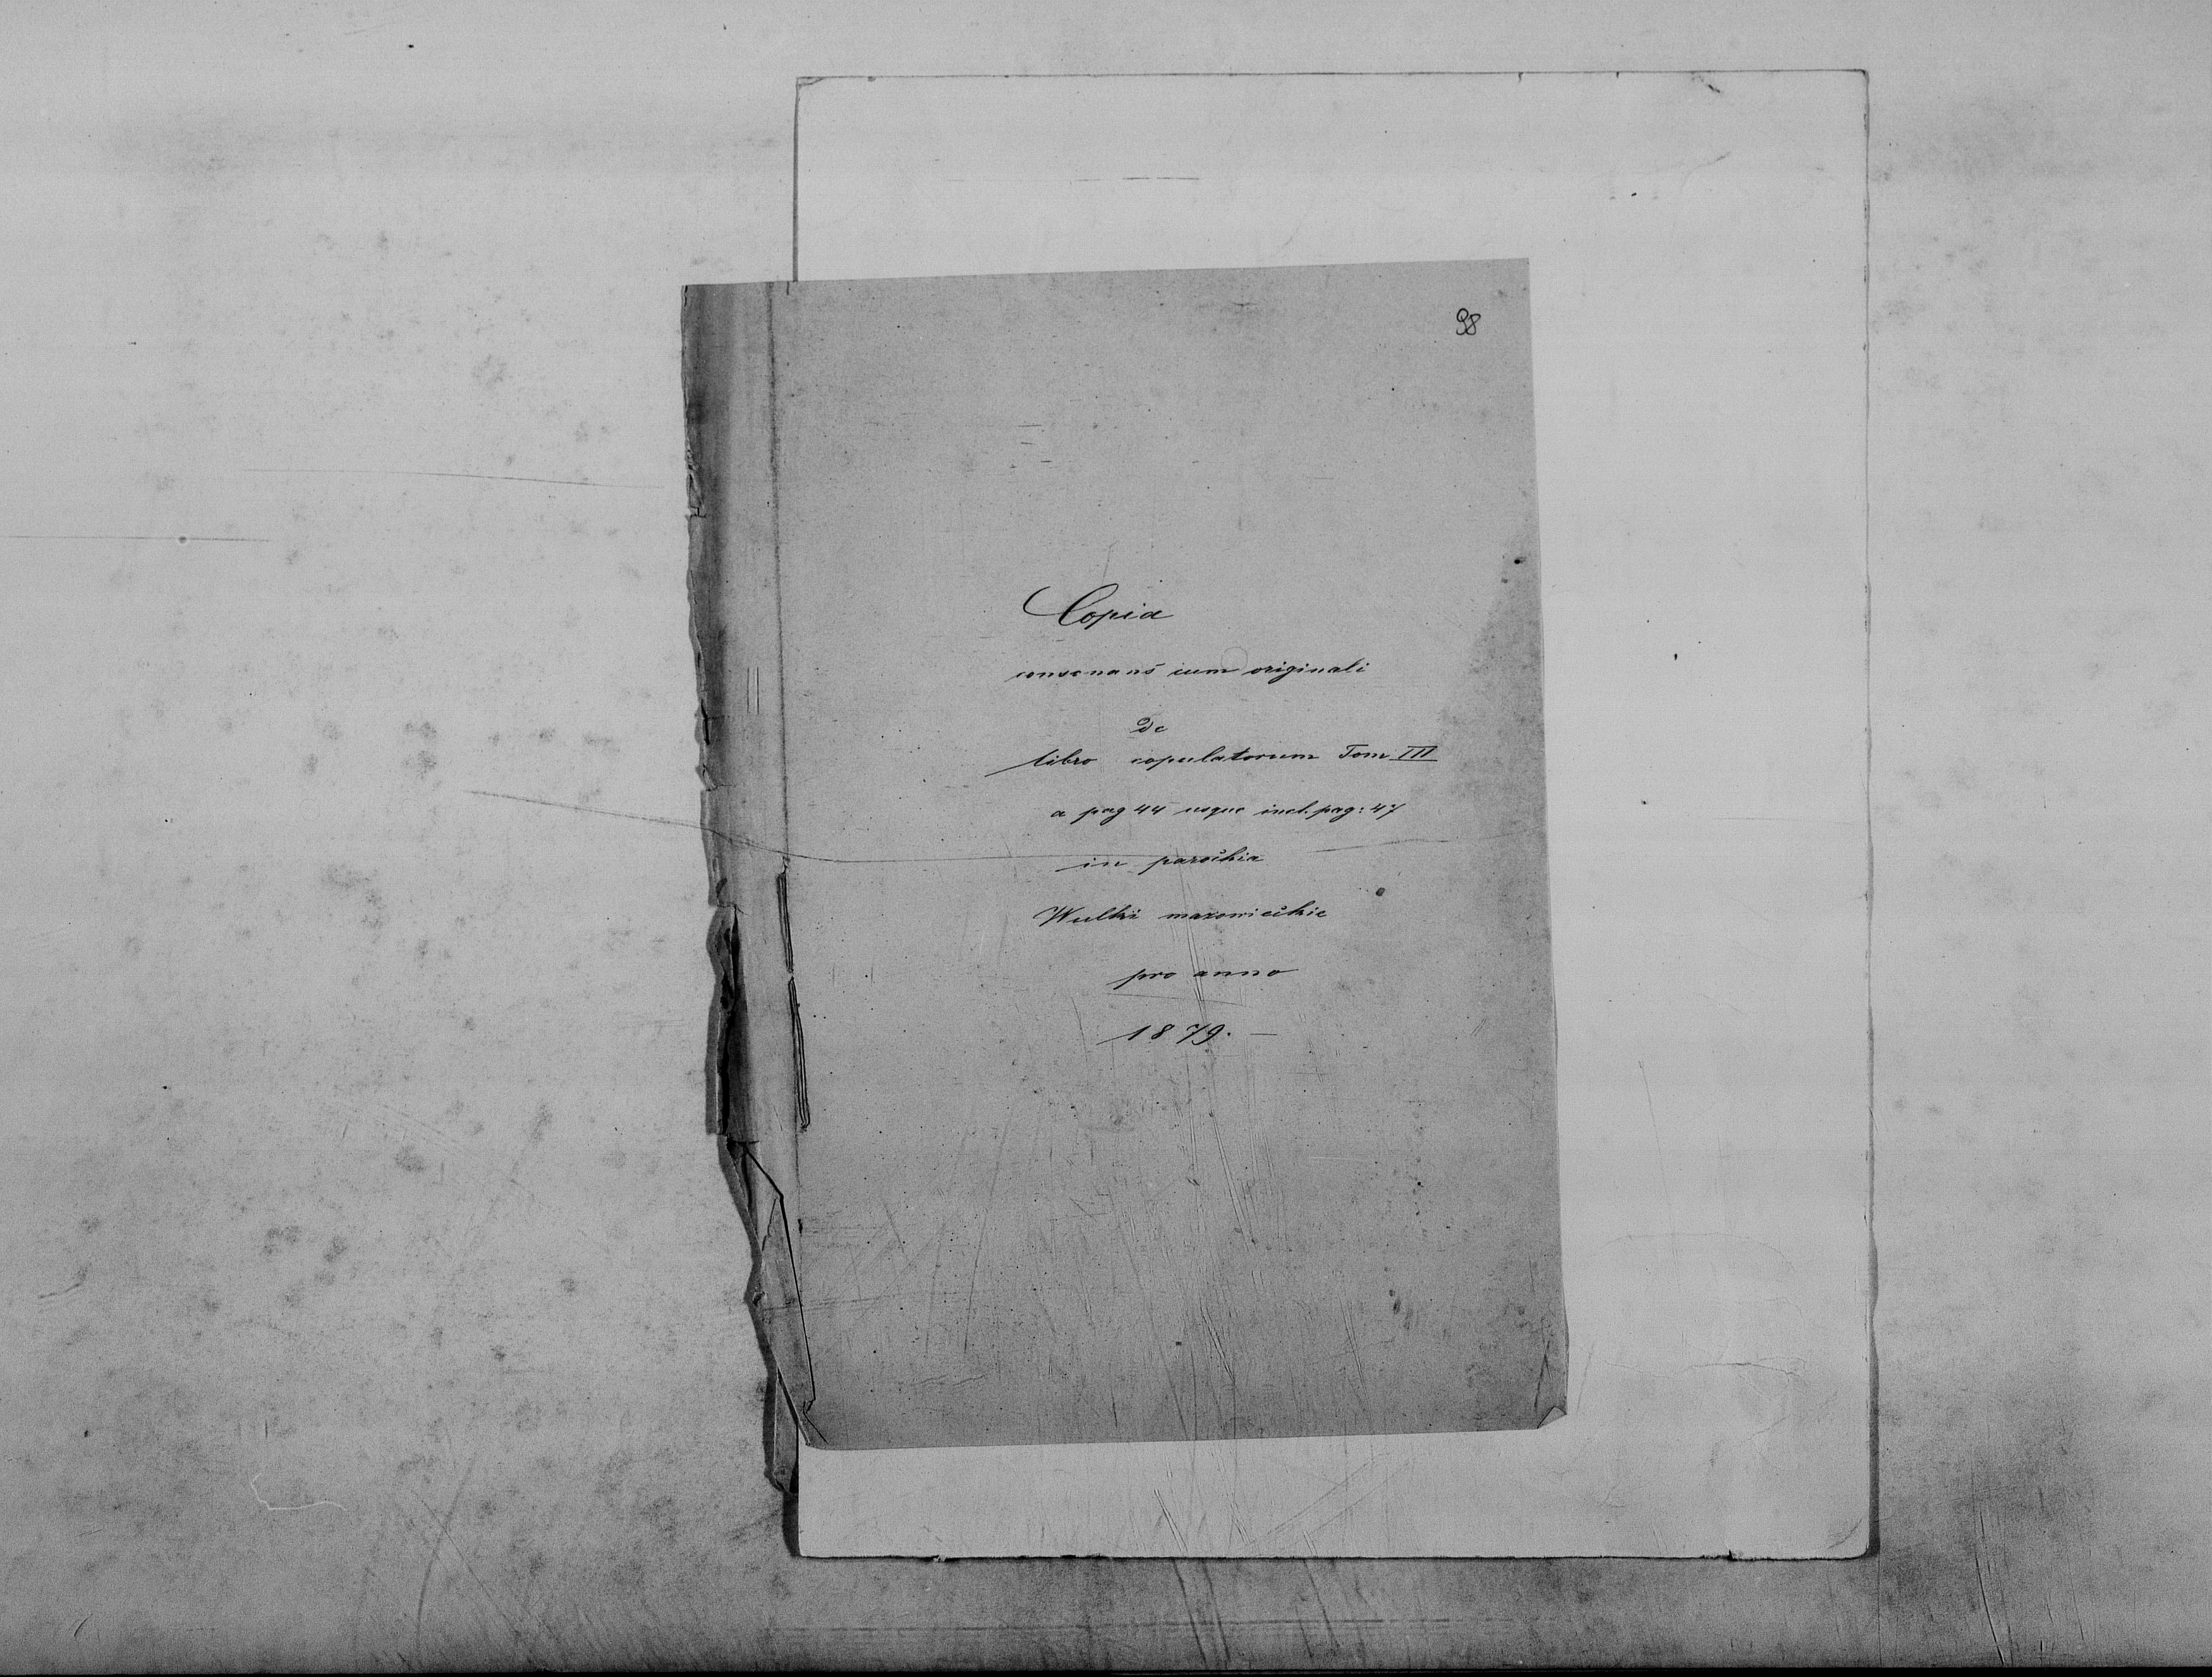 98
Copia
consonans cum originali
De
libro copulatorum Tom III
a pag 44 usque incl. pag: 47
in parochia
Wulki mazowieckie
pro anno
1879. —